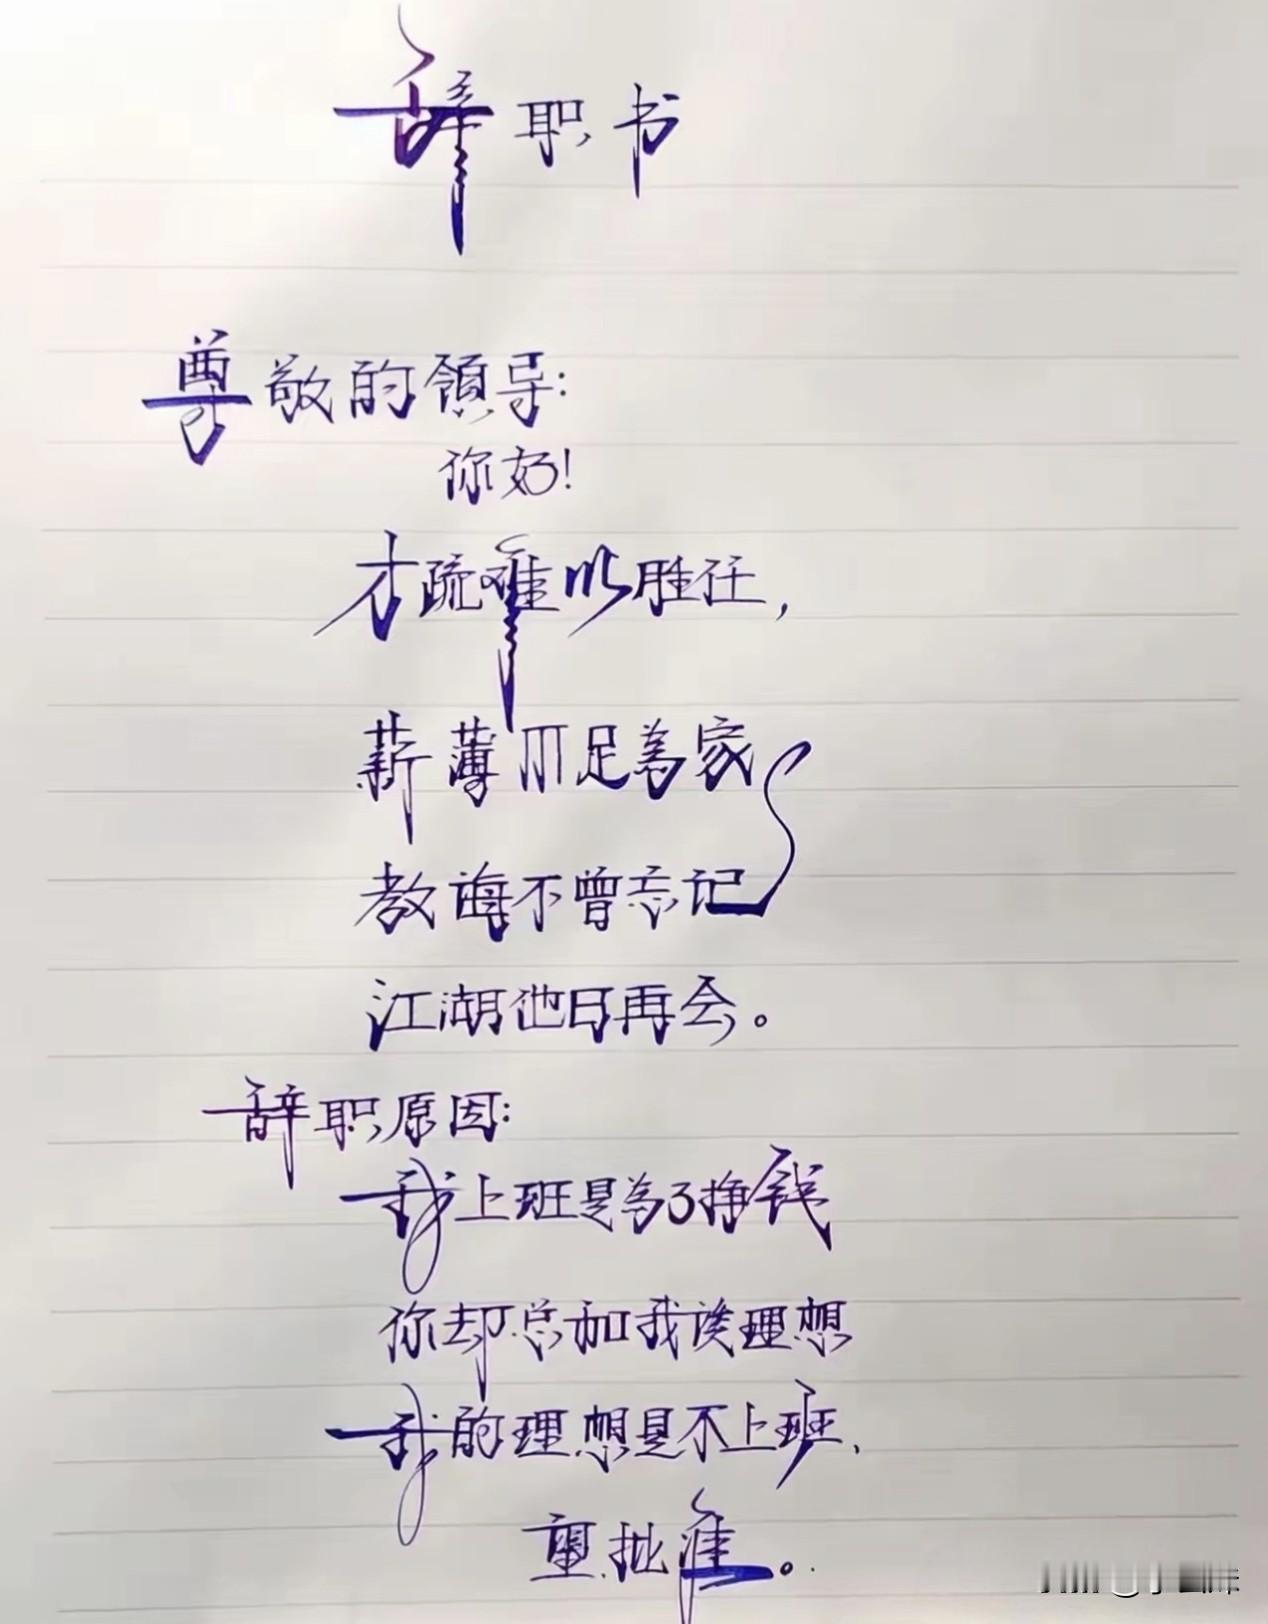 辞职书
尊敬的領导:
你好!
才疏难以胜任,
薪薄不足为家
教诲不曾忘记
江湖他日再会。
辞职原因:
我上班是为了挣钱
你却总和我谈理想
我的理想是不上班,
望批准。